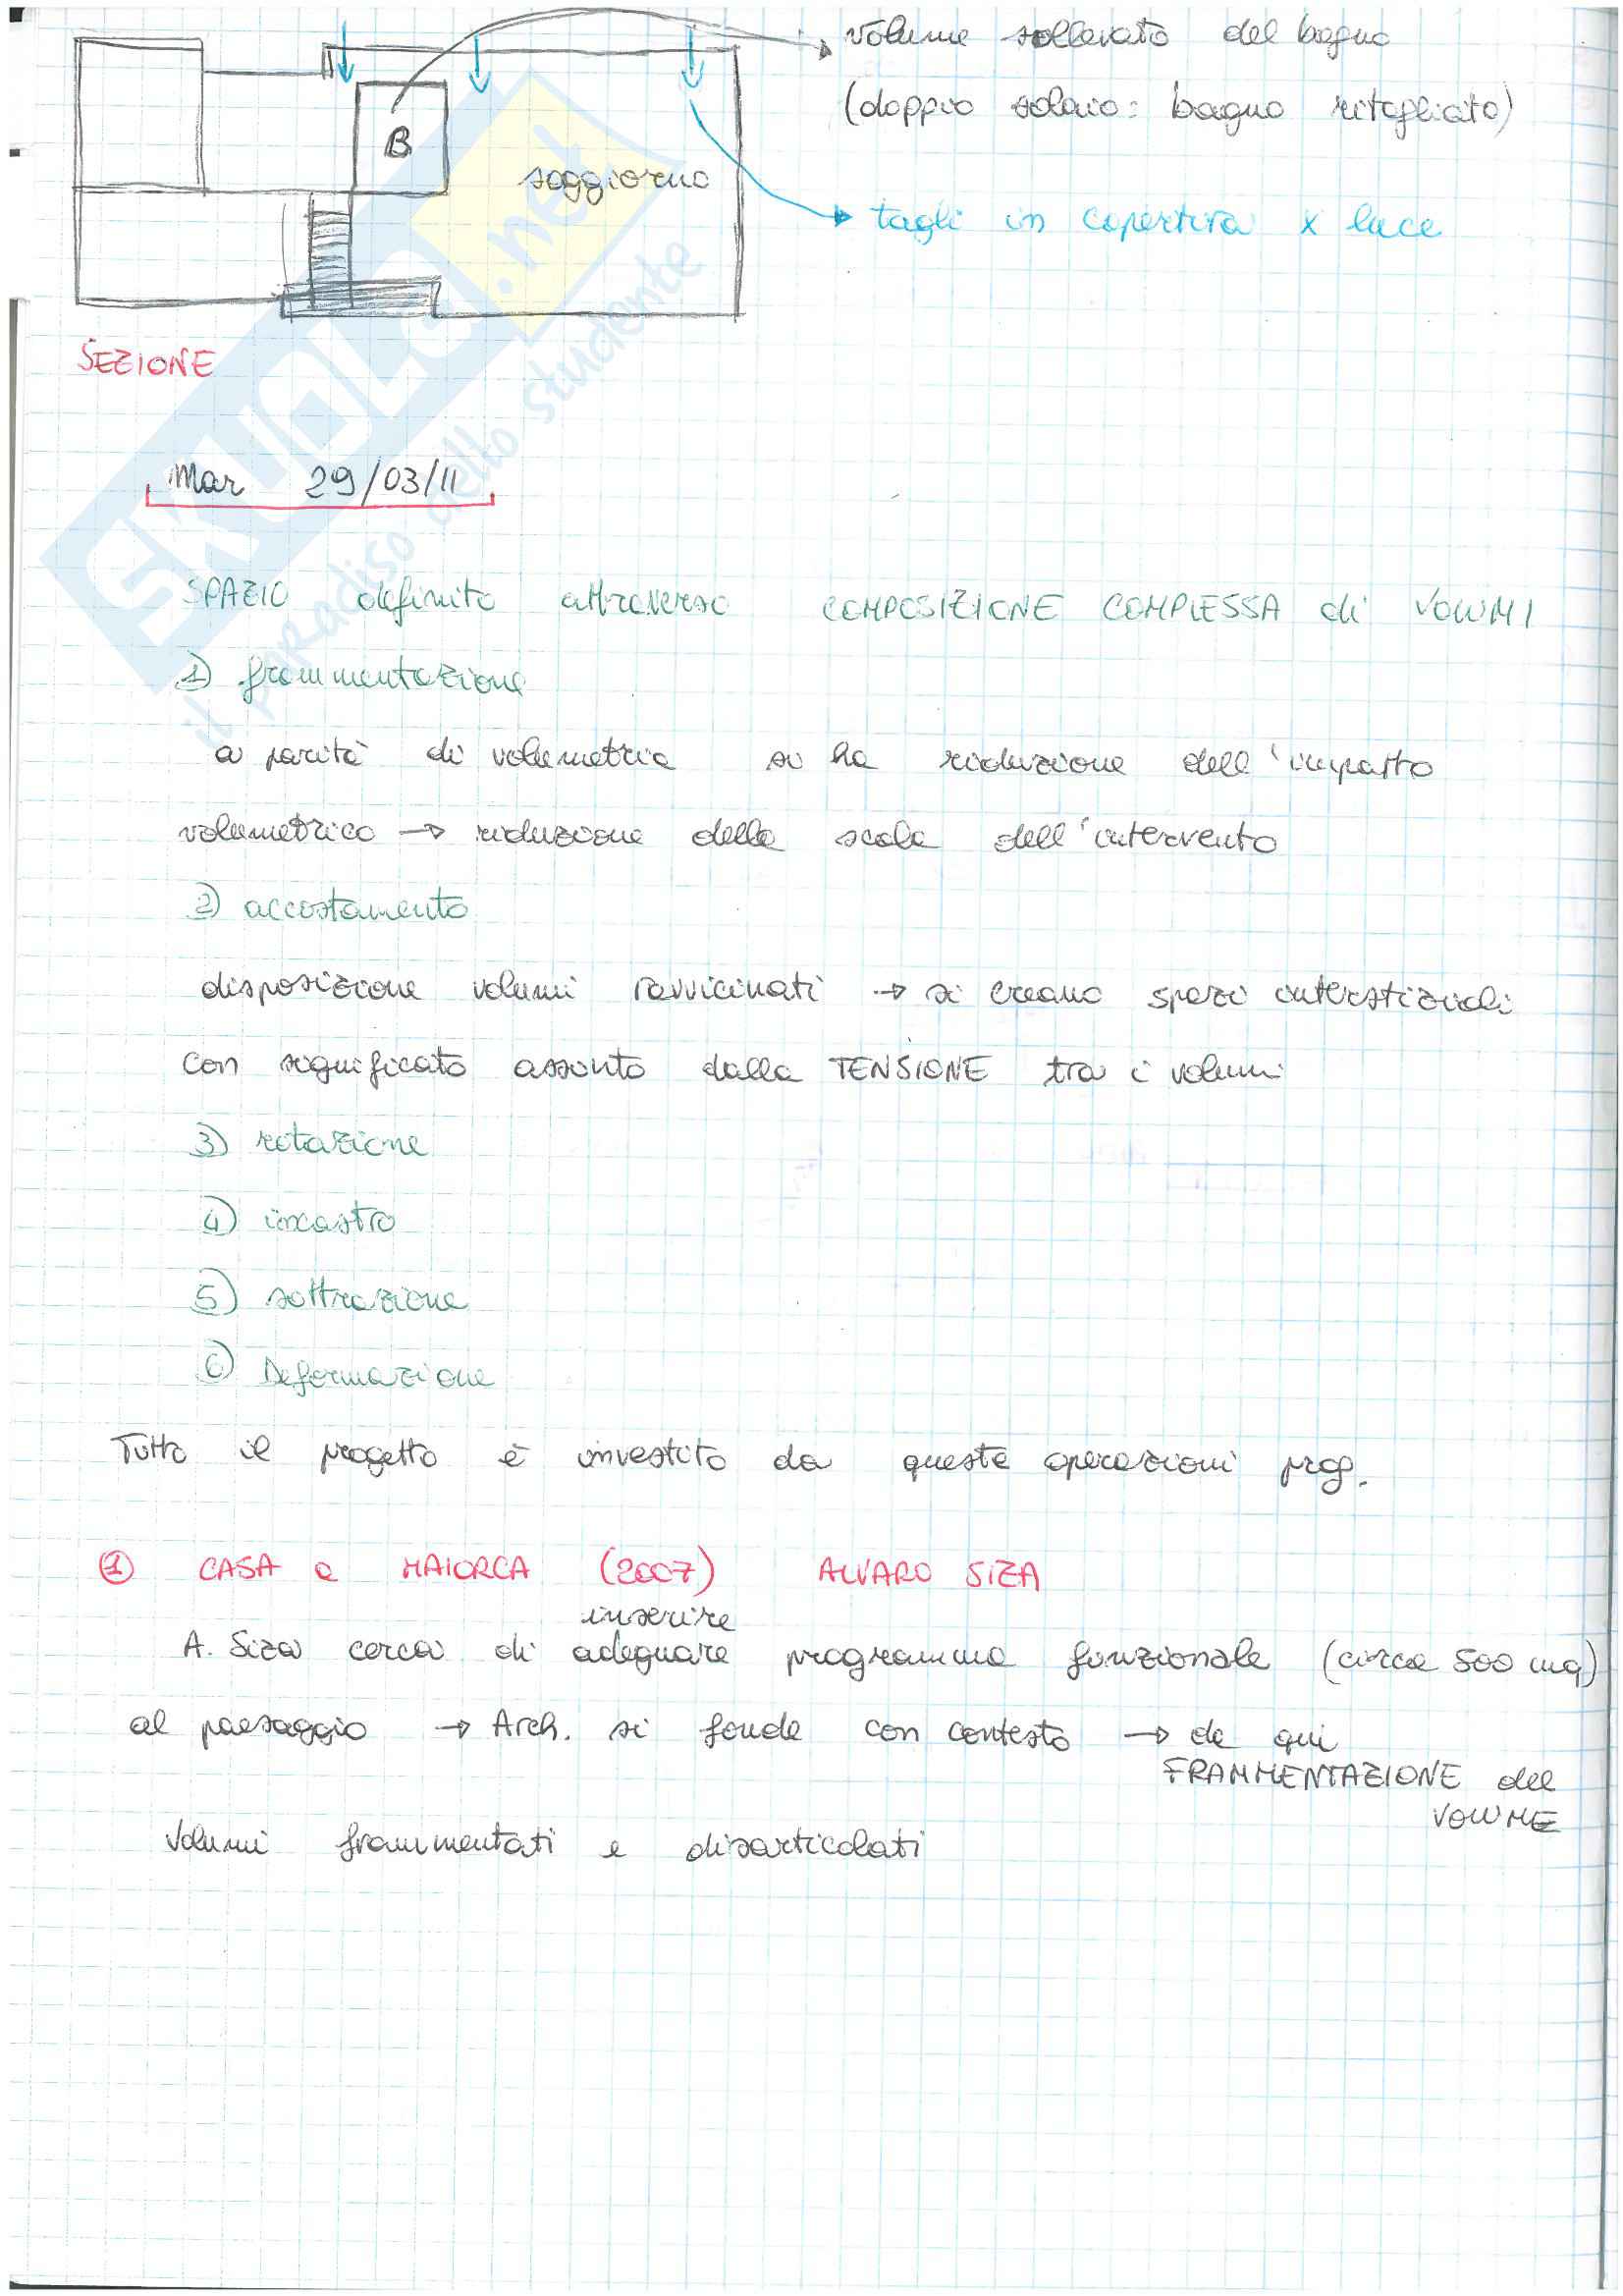 volume sollevato del bagno
(doppio solaio: bagno ritagliato)
B
soggiorno
tagli in copertura x luce
SEZIONE
Mar 29/03/11
SPAZIO definito attraverso COMPOSIZIONE COMPLESSA di VOLUMI
1) frammentazione
a parità di volumetria si ha riduzione dell'impatto
volumetrico → riduzione della scala dell'intervento
2) accostamento
disposizione volumi ravvicinati → si creano spazi interstiziali
con significato assunto dalla TENSIONE tra i volumi
3) rotazione
4) incastro
5) sottrazione
6) Deformazione
Tutto il progetto è investito da queste operazioni prog.
1 CASA a MAIORCA (2007) ALVARO SIZA
inserire
A. Siza cerca di adeguare programma funzionale (circa 500 mq)
al paesaggio → Arch. si fonde con contesto → da qui
FRAMMENTAZIONE del
VOLUME
Volumi frammentati e disarticolati
SKUOLA.net
il paradiso dello studente